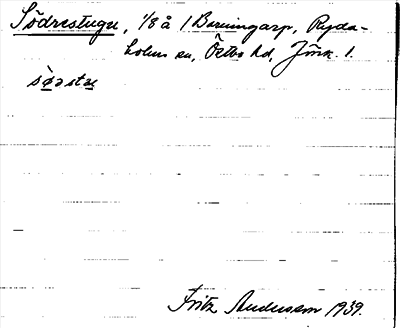 Södrestugu, 1/8 å 1 Barningarp, Ryda-
holms sn, Östbo hd, Jönk. l.
Fritz Andersson 1939.